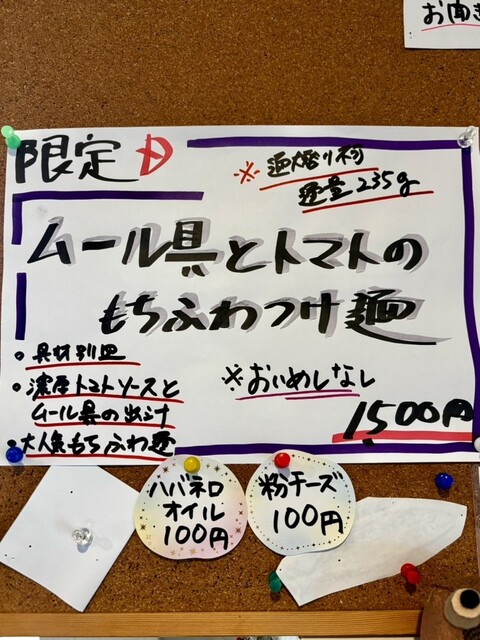 お聞き
限定 D
※
麺量235g
ムール貝とトマトの
もちふわつけ麺
・具材別皿
・濃厚トマトソースと
ムール貝の出汁
・大人気もちふわ麺
※おいめしなし
1500円
ハバネロ
オイル
100円
粉チーズ
100円